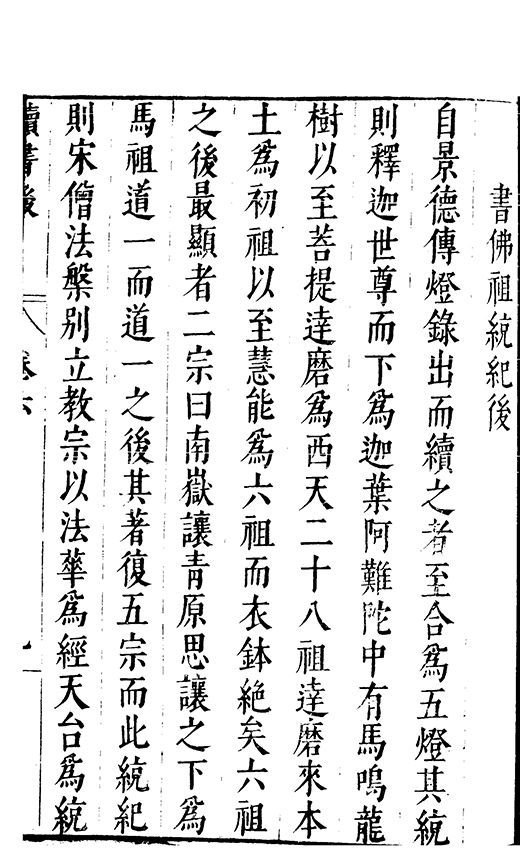 書佛祖統紀後
自景德傳燈錄出而續之者至合爲五燈其統
則釋迦世尊而下爲迦葉阿難陀中有馬鳴龍
樹以至菩提達磨爲西天二十八祖達磨來本
土爲初祖以至慧能爲六祖而衣鉢絶矣六祖
之後最顯者二宗曰南嶽讓青原思讓之下爲
馬祖道一而道一之後其著復五宗而此統紀
則宋僧法槃別立教宗以法華爲經天台爲統
讀書後 卷六